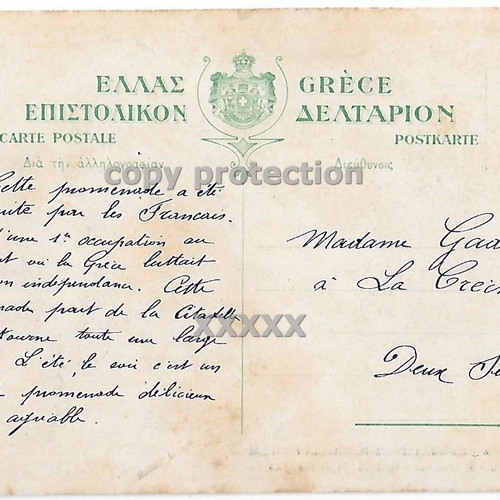 ΕΛΛΑΣ GRÈCE
ΕΠΙΣΤΟΛΙΚΟΝ ΔΕΛΤΑΡΙΟΝ
CARTE POSTALE POSTKARTE
Διὰ τὴν ἀλληλογραφίαν Διεύθυνσις
copy protection
Cette promenade a été
par les Francais.
d'une 1re occupation au
où la Grèce luttait
indépendance. Cette
part de la Citadelle
toute une large
L'été, le soir c'est un
promenade délicieux
agréable.
xxxxx
Madame
à La
Deux